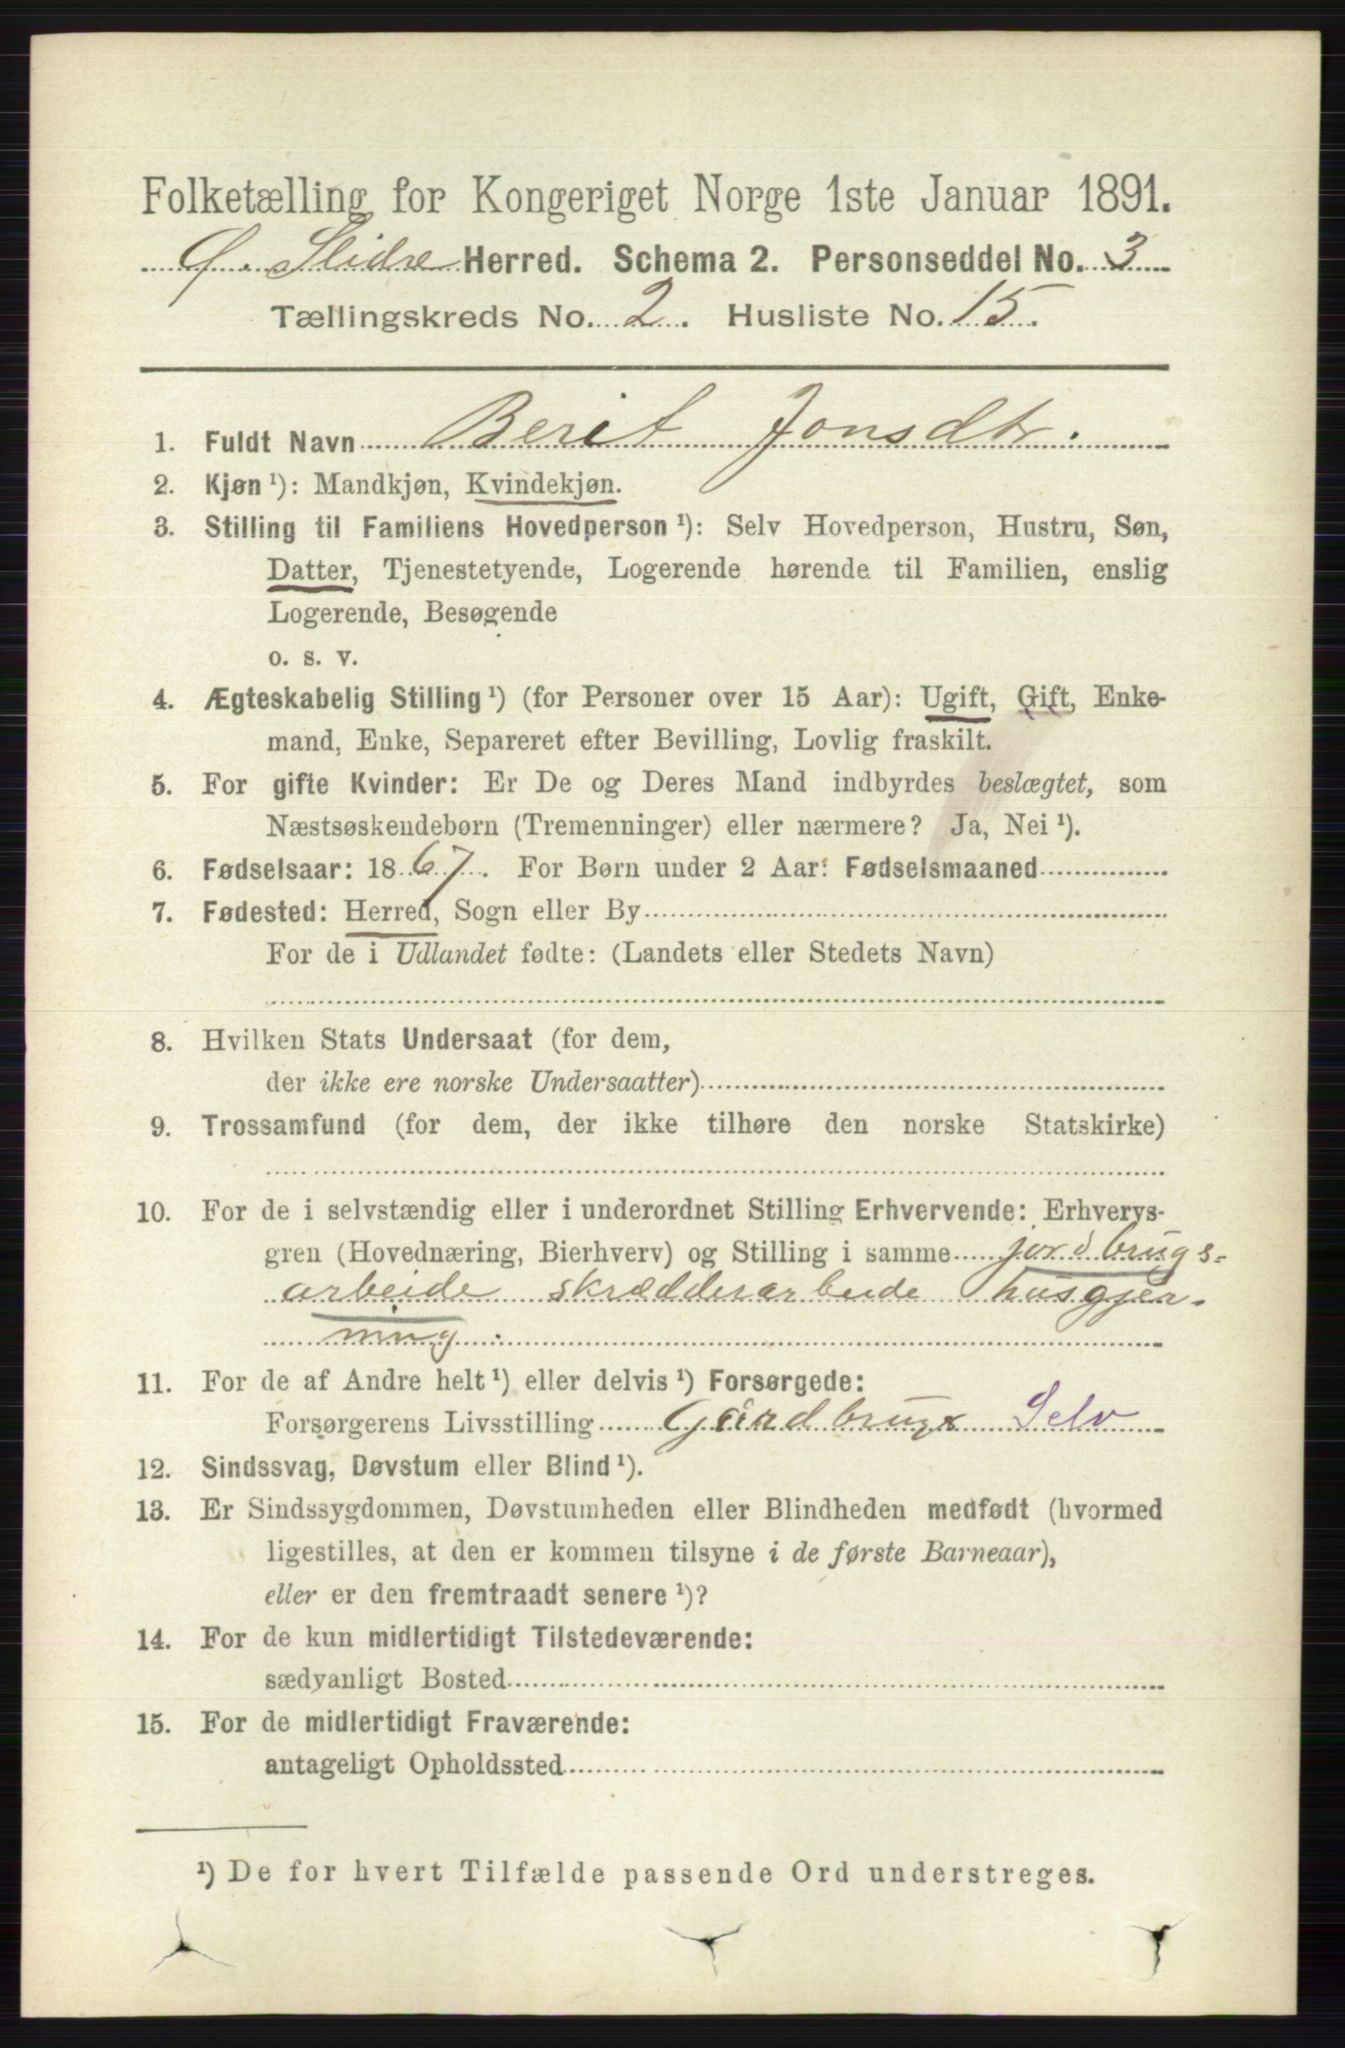 Folketælling for Kongeriget Norge 1ste Januar 1891.
Ø. Slidre Herred. Schema 2. Personseddel No. 3
Tællingskreds No. 2. Husliste No. 15.
1. Fuldt Navn Berit Jonsdtr.
2. Kjøn ¹): Mandkjøn, Kvindekjøn.
3. Stilling til Familiens Hovedperson ¹): Selv Hovedperson, Hustru, Søn,
Datter, Tjenestetyende, Logerende hørende til Familien, enslig
Logerende, Besøgende
o. s. v.
4. Ægteskabelig Stilling ¹) (for Personer over 15 Aar): Ugift, Gift, Enke-
mand, Enke, Separeret efter Bevilling, Lovlig fraskilt.
5. For gifte Kvinder: Er De og Deres Mand indbyrdes beslægtet, som
Næstsøskendebørn (Tremenninger) eller nærmere? Ja, Nei ¹).
6. Fødselsaar: 1867. For Børn under 2 Aar: Fødselsmaaned
7. Fødested: Herred, Sogn eller By
For de i Udlandet fødte: (Landets eller Stedets Navn)
8. Hvilken Stats Undersaat (for dem,
der ikke ere norske Undersaatter)
9. Trossamfund (for dem, der ikke tilhøre den norske Statskirke)
10. For de i selvstændig eller i underordnet Stilling Erhvervende: Erhvervs-
gren (Hovednæring, Bierhverv) og Stilling i samme jordbrugs-
arbeide skrædderarbeide husgjer-
ning.
11. For de af Andre helt ¹) eller delvis ¹) Forsørgede:
Forsørgerens Livsstilling Gårdbruger Selv
12. Sindssvag, Døvstum eller Blind ¹).
13. Er Sindssygdommen, Døvstumheden eller Blindheden medfødt (hvormed
ligestilles, at den er kommen tilsyne i de første Barneaar),
eller er den fremtraadt senere ¹)?
14. For de kun midlertidigt Tilstedeværende:
sædvanligt Bosted
15. For de midlertidigt Fraværende:
antageligt Opholdssted
¹) De for hvert Tilfælde passende Ord understreges.